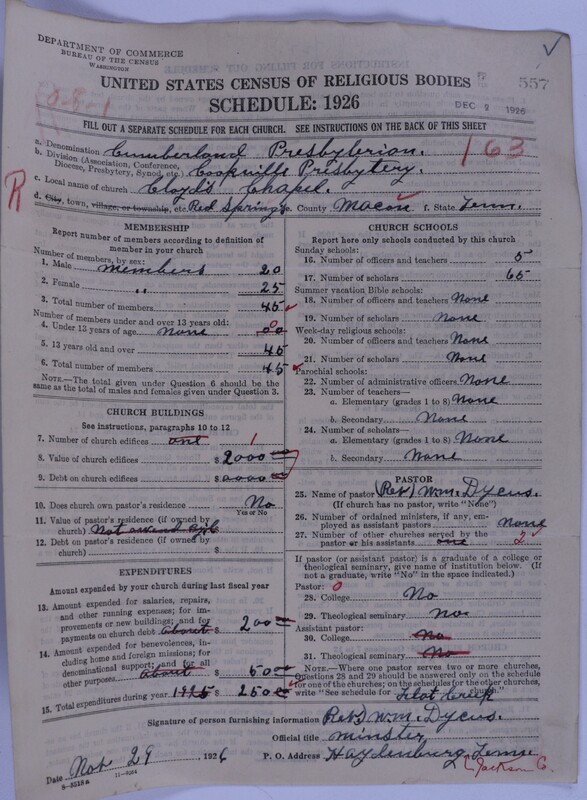 DEPARTMENT OF COMMERCE
BUREAU OF THE CENSUS
WASHINGTON
UNITED STATES CENSUS OF RELIGIOUS BODIES
557
SCHEDULE: 1926
DEC 2 1926
FILL OUT A SEPARATE SCHEDULE FOR EACH CHURCH. SEE INSTRUCTIONS ON THE BACK OF THIS SHEET
a. Denomination Cumberland Presbyterian.
163
b. Division (Association, Conference, Diocese, Presbytery, Synod, etc.) Cookville Presbytery.
c. Local name of church Cloyd's Chapel.
R
d. City, town, village, or township, etc. Red Springs e. County Macon f. State Tenn.
MEMBERSHIP
Report number of members according to definition of
member in your church
Number of members, by sex:
1. Male members 20
2. Female " 25
3. Total number of members 45
Number of members under and over 13 years old:
4. Under 13 years of age None 00 0
5. 13 years old and over 45
6. Total number of members 45
NOTE.—The total given under Question 6 should be the
same as the total of males and females given under Question 3.
CHURCH BUILDINGS
See instructions, paragraphs 10 to 12
7. Number of church edifices one 1
8. Value of church edifices $ 2000
9. Debt on church edifices $ 0000
10. Does church own pastor's residence? No
Yes or No
11. Value of pastor's residence (if owned by
church) Not owned $
12. Debt on pastor's residence (if owned by
church) $
EXPENDITURES
Amount expended by your church during last fiscal year
13. Amount expended for salaries, repairs,
and other running expenses; for im-
provements or new buildings; and for
payments on church debt about $ 200
14. Amount expended for benevolences, in-
cluding home and foreign missions; for
denominational support; and for all
other purposes about $ 50
15. Total expenditures during year 1925 $ 250
CHURCH SCHOOLS
Report here only schools conducted by this church
Sunday schools:
16. Number of officers and teachers 5
17. Number of scholars 65
Summer vacation Bible schools:
18. Number of officers and teachers None
19. Number of scholars None
Week-day religious schools:
20. Number of officers and teachers None
21. Number of scholars None
Parochial schools:
22. Number of administrative officers None
23. Number of teachers—
a. Elementary (grades 1 to 8) None
b. Secondary None
24. Number of scholars—
a. Elementary (grades 1 to 8) None
b. Secondary None
PASTOR
25. Name of pastor (Rev) Wm. Dycus.
(If church has no pastor, write "None")
26. Number of ordained ministers, if any, em-
ployed as assistant pastors None
27. Number of other churches served by the
pastor or his assistants one 2
If pastor (or assistant pastor) is a graduate of a college or
theological seminary, give name of institution below. (If
not a graduate, write "No" in the space indicated.)
Pastor: 0
28. College No
29. Theological seminary No.
Assistant pastor:
30. College No
31. Theological seminary No
NOTE.—Where one pastor serves two or more churches,
Questions 28 and 29 should be answered only on the schedule
for one of the churches; on the schedules for the other churches,
write "See schedule for Flat Creek church."
Signature of person furnishing information (Rev) Wm. Dycus.
Official title minster
Date Nov 29, 1926
P. O. Address Haydenburg, Tenn.
(Jackson C.
8-3518a
11-3564